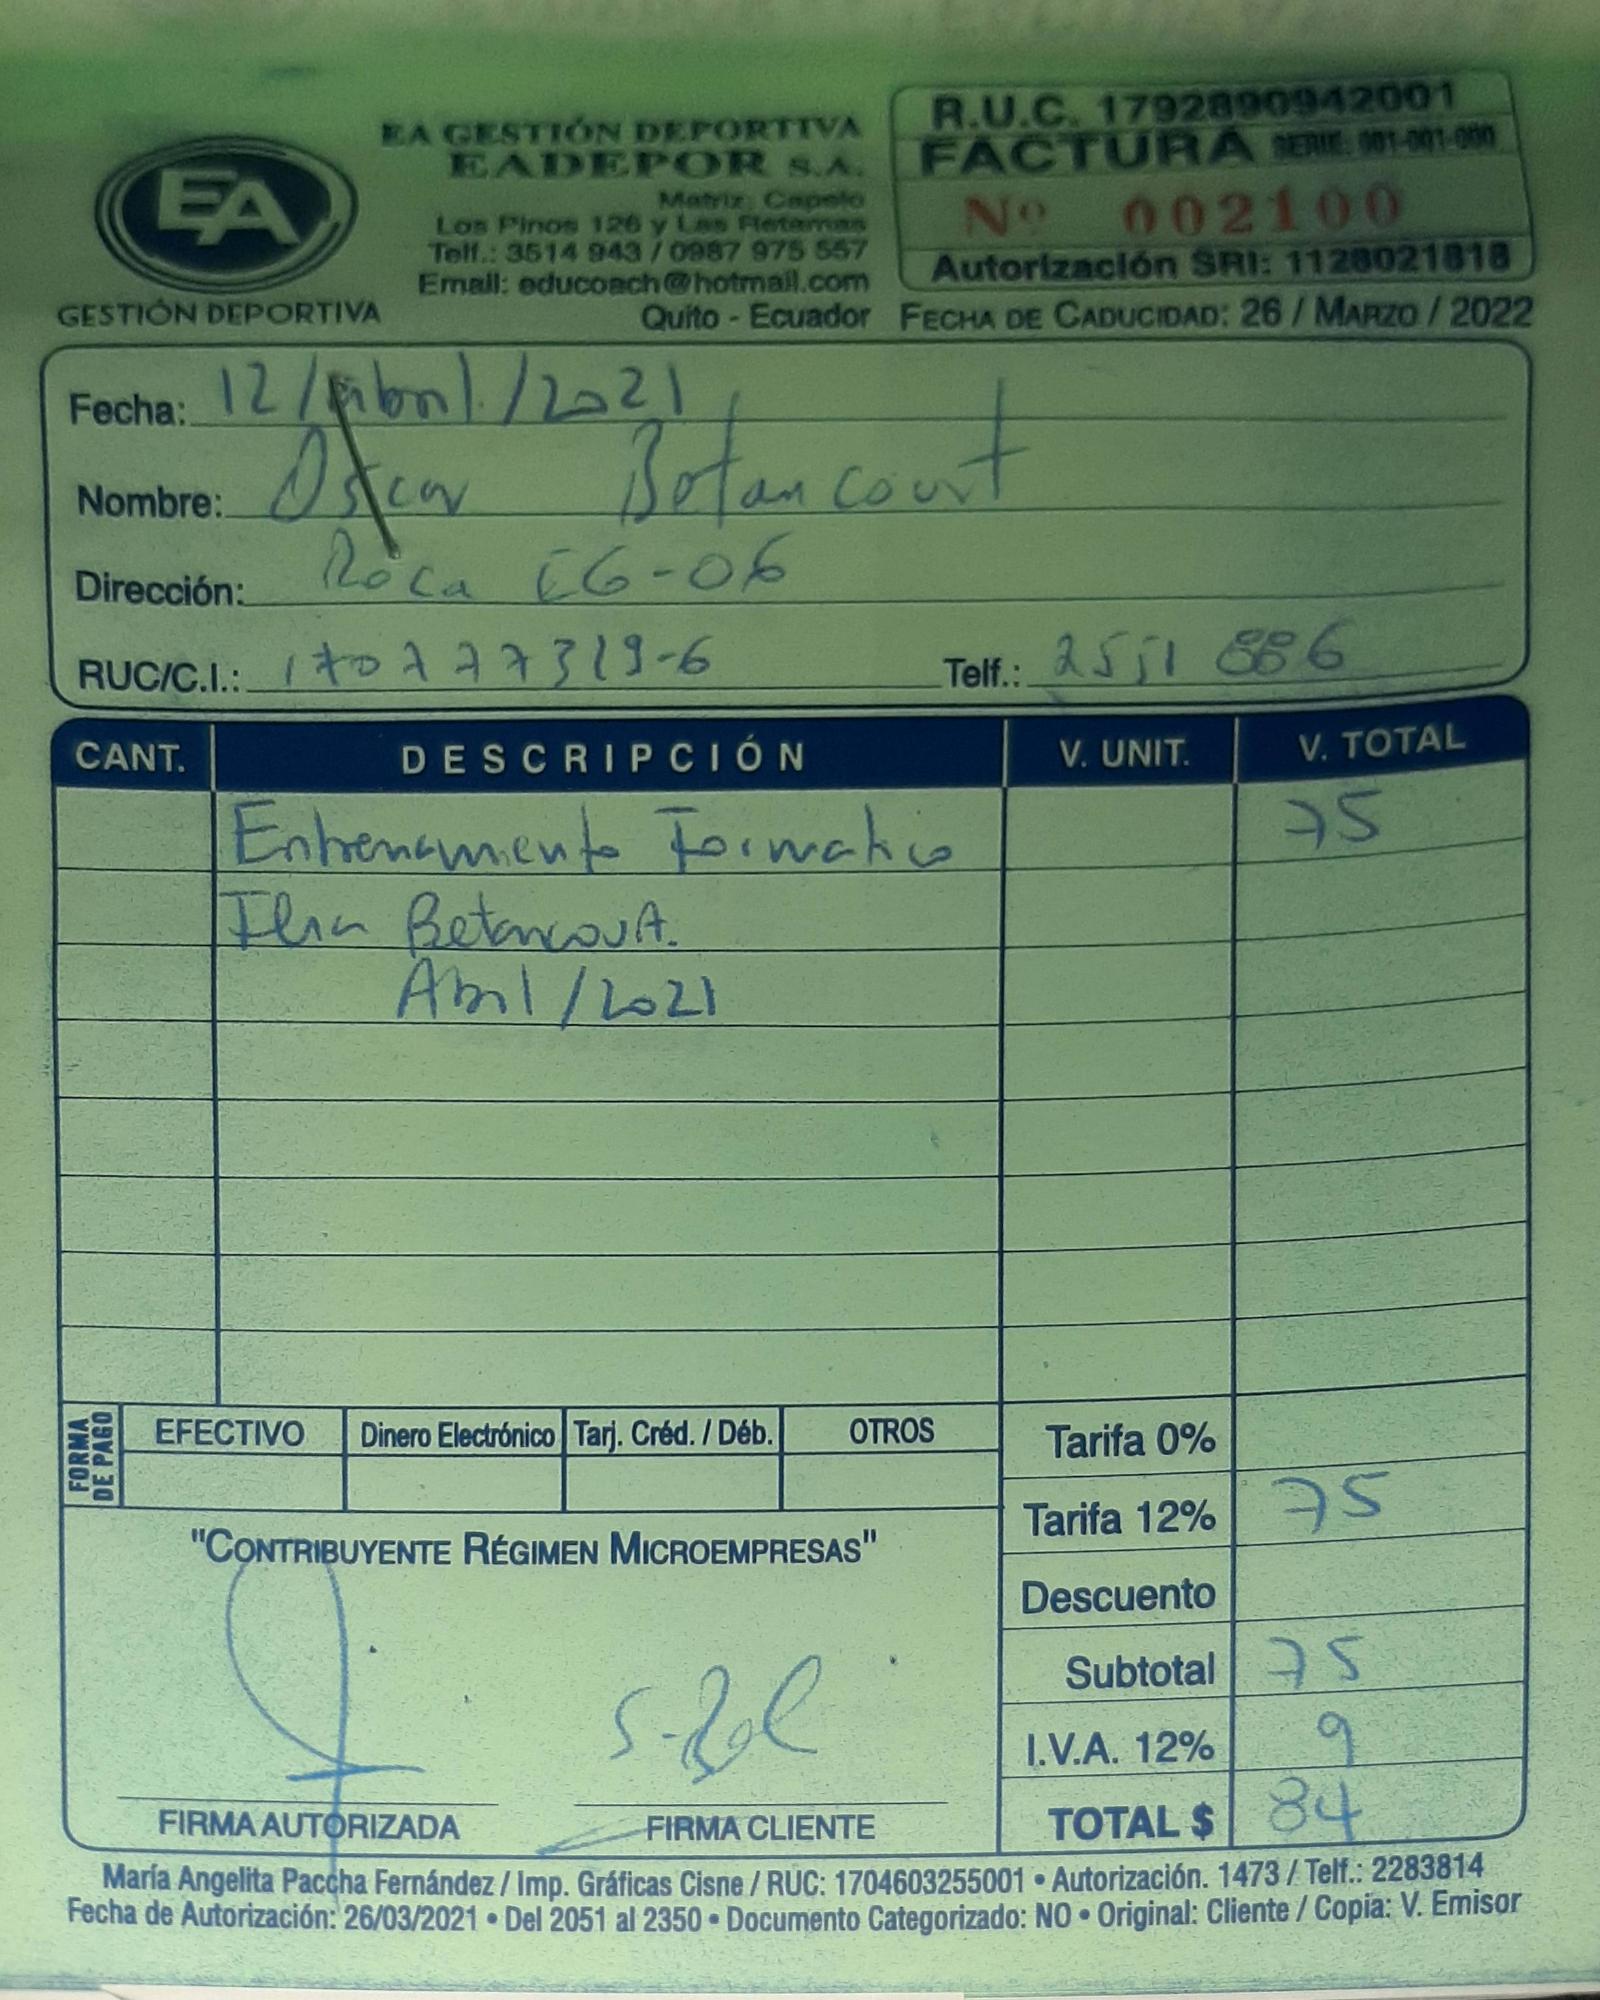 EA
GESTIÓN DEPORTIVA
EA GESTIÓN DEPORTIVA
EADEPOR S.A.
Matriz: Capelo
Los Pinos 126 y Las Retamas
Telf.: 3514 943 / 0987 975 557
Email: educoach@hotmail.com
Quito - Ecuador
R.U.C. 1792890942001
FACTURA SERIE: 001-001-000
Nº 002100
Autorización SRI: 1128021818
FECHA DE CADUCIDAD: 26 / MARZO / 2022
Fecha: 12/Abril/2021
Nombre: Oscar Betancourt
Dirección: Roca E6-06
RUC/C.I.: 170777319-6 Telf.: 2551 886
CANT. DESCRIPCIÓN V. UNIT. V. TOTAL
Entrenamiento Formativo 75
Betancourt.
Abril/2021
FORMA DE PAGO
EFECTIVO Dinero Electrónico Tarj. Créd. / Déb. OTROS
Tarifa 0%
Tarifa 12% 75
Descuento
Subtotal 75
I.V.A. 12% 9
TOTAL $ 84
"CONTRIBUYENTE RÉGIMEN MICROEMPRESAS"
FIRMA AUTORIZADA FIRMA CLIENTE
María Angelita Paccha Fernández / Imp. Gráficas Cisne / RUC: 1704603255001 • Autorización. 1473 / Telf.: 2283814
Fecha de Autorización: 26/03/2021 • Del 2051 al 2350 • Documento Categorizado: NO • Original: Cliente / Copia: V. Emisor